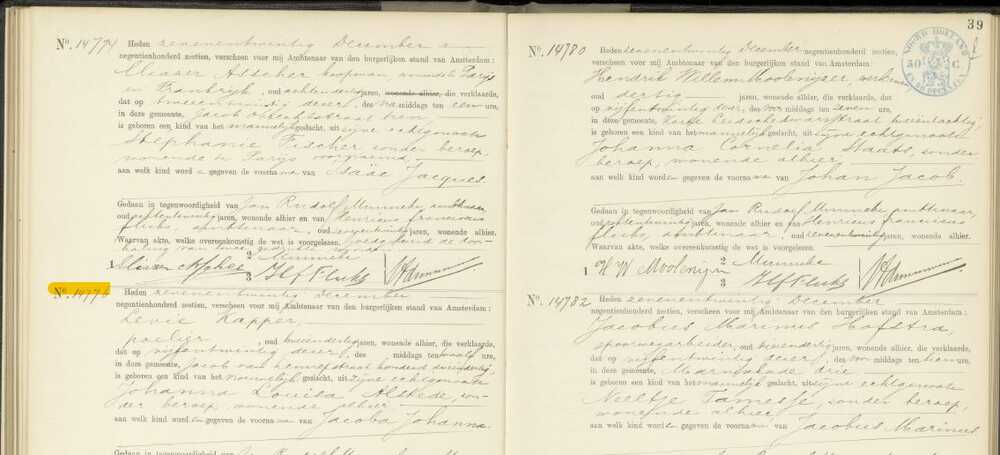 Nº. 14774 Heden zevenentwintig December
negentienhonderd zestien, verscheen voor mij Ambtenaar van den burgerlijken stand van Amsterdam:
Asscher koopman, wonende te Parijs
in Frankrijk, oud achtendertig jaren, wonende alhier, die verklaarde,
dat op tweeentwintig dezer, des na middags ten een ure,
in deze gemeente, Jacob Obrechtstraat tien
is geboren een kind van het mannelijk geslacht, uit zijne echtgenoote
Stephanie Fischer zonder beroep,
wonende te Parijs voornoemd
aan welk kind worden gegeven de voornamen van Isaac Jacques.
Gedaan in tegenwoordigheid van Jan Rudolf Minneke ambtenaar,
oud jaren, wonende alhier en van Henricus Franciscus
Fluks, ambtenaar, oud jaren, wonende alhier.
Waarvan akte, welke overeenkomstig de wet is voorgelezen. Goedgekeurd de door-
haling van
2 Minneke
1 Asscher 3 H F Fluks
Nº. 14776 Heden zevenentwintig December
negentienhonderd zestien, verscheen voor mij Ambtenaar van den burgerlijken stand van Amsterdam:
Levie Kapper,
oud jaren, wonende alhier, die verklaarde,
dat op vijfentwintig dezer, des middags ten twaalf ure,
in deze gemeente, Jacob van Lennepstraat honderd
is geboren een kind van het mannelijk geslacht, uit zijne echtgenoote
Johanna Louisa Alstede, zon-
der beroep, wonende alhier
aan welk kind worden gegeven de voornamen van Jacoba Johanna.
39
Nº. 14780 Heden zevenentwintig December negentienhonderd zestien,
verscheen voor mij Ambtenaar van den burgerlijken stand van Amsterdam:
Hendrik Willem Moolenijzer werkman
oud dertig jaren, wonende alhier, die verklaarde,
dat op vijfentwintig dezer, des voor middags ten zeven ure,
in deze gemeente, Korte Leidschedwarsstraat
is geboren een kind van het mannelijk geslacht, uit zijne echtgenoote
Johanna Cornelia Staats, zonder
beroep, wonende alhier
aan welk kind worden gegeven de voornamen van Johan Jacob.
Gedaan in tegenwoordigheid van Jan Rudolf Minneke ambtenaar,
oud jaren, wonende alhier en van Henricus Franciscus
Fluks, ambtenaar, oud jaren, wonende alhier.
Waarvan akte, welke overeenkomstig de wet is voorgelezen.
2 Minneke
1 H W 3 H F Fluks
Nº. 14782 Heden zevenentwintig December
negentienhonderd zestien, verscheen voor mij Ambtenaar van den burgerlijken stand van Amsterdam:
Jacobus Marinus Hofstra,
spoorwegarbeider, oud jaren, wonende alhier, die verklaarde,
dat op vijfentwintig dezer, des voor middags ten tien ure,
in deze gemeente, Marnixkade drie
is geboren een kind van het mannelijk geslacht, uit zijne echtgenoote
Neeltje Tamesse, zonder beroep,
wonende alhier
aan welk kind worden gegeven de voornamen van Jacobus Marinus